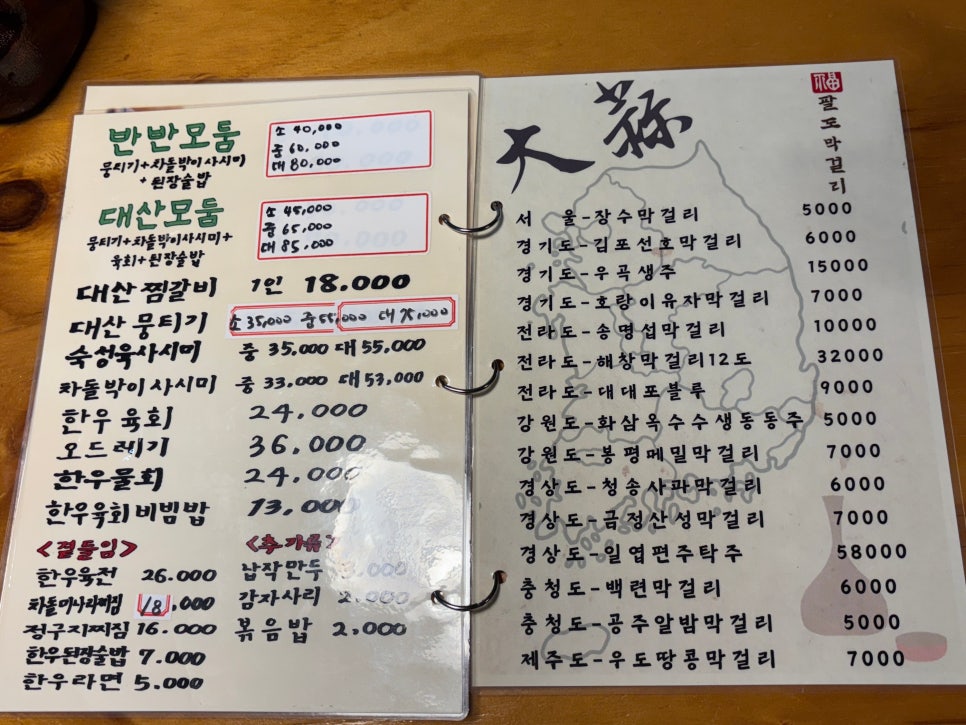 반반모둠
뭉티기+차돌박이사시미
+된장술밥
소 40,000
중 60,000
대 80,000
대산모둠
뭉티기+차돌박이사시미+
육회+된장술밥
소 45,000
중 65,000
대 85,000
대산찜갈비 1인 18.000
대산 뭉티기 소 35,000 중 55,000 대 75,000
숙성육사시미 중 35.000 대 55,000
차돌박이사시미 중 33.000 대 53,000
한우육회 24.000
오드레기 36.000
한우물회 24.000
한우육회비빔밥 13.000
<곁들임>
한우육전 26.000
차돌미나리찌짐 18.000
정구지찌짐 16.000
한우된장술밥 7.000
한우라면 5.000
<추가류>
납작만두 3.000
감자사리 2.000
볶음밥 2.000
大蒜
福
팔도막걸리
서 울-장수막걸리 5000
경기도-김포선호막걸리 6000
경기도-우곡생주 15000
경기도-호랑이유자막걸리 7000
전라도-송명섭막걸리 10000
전라도-해창막걸리12도 32000
전라도-대대포블루 9000
강원도-화삼옥수수생동동주 5000
강원도-봉평메밀막걸리 7000
경상도-청송사파막걸리 6000
경상도-금정산성막걸리 7000
경상도-일엽편주탁주 58000
충청도-백련막걸리 6000
충청도-공주알밤막걸리 5000
제주도-우도땅콩막걸리 7000